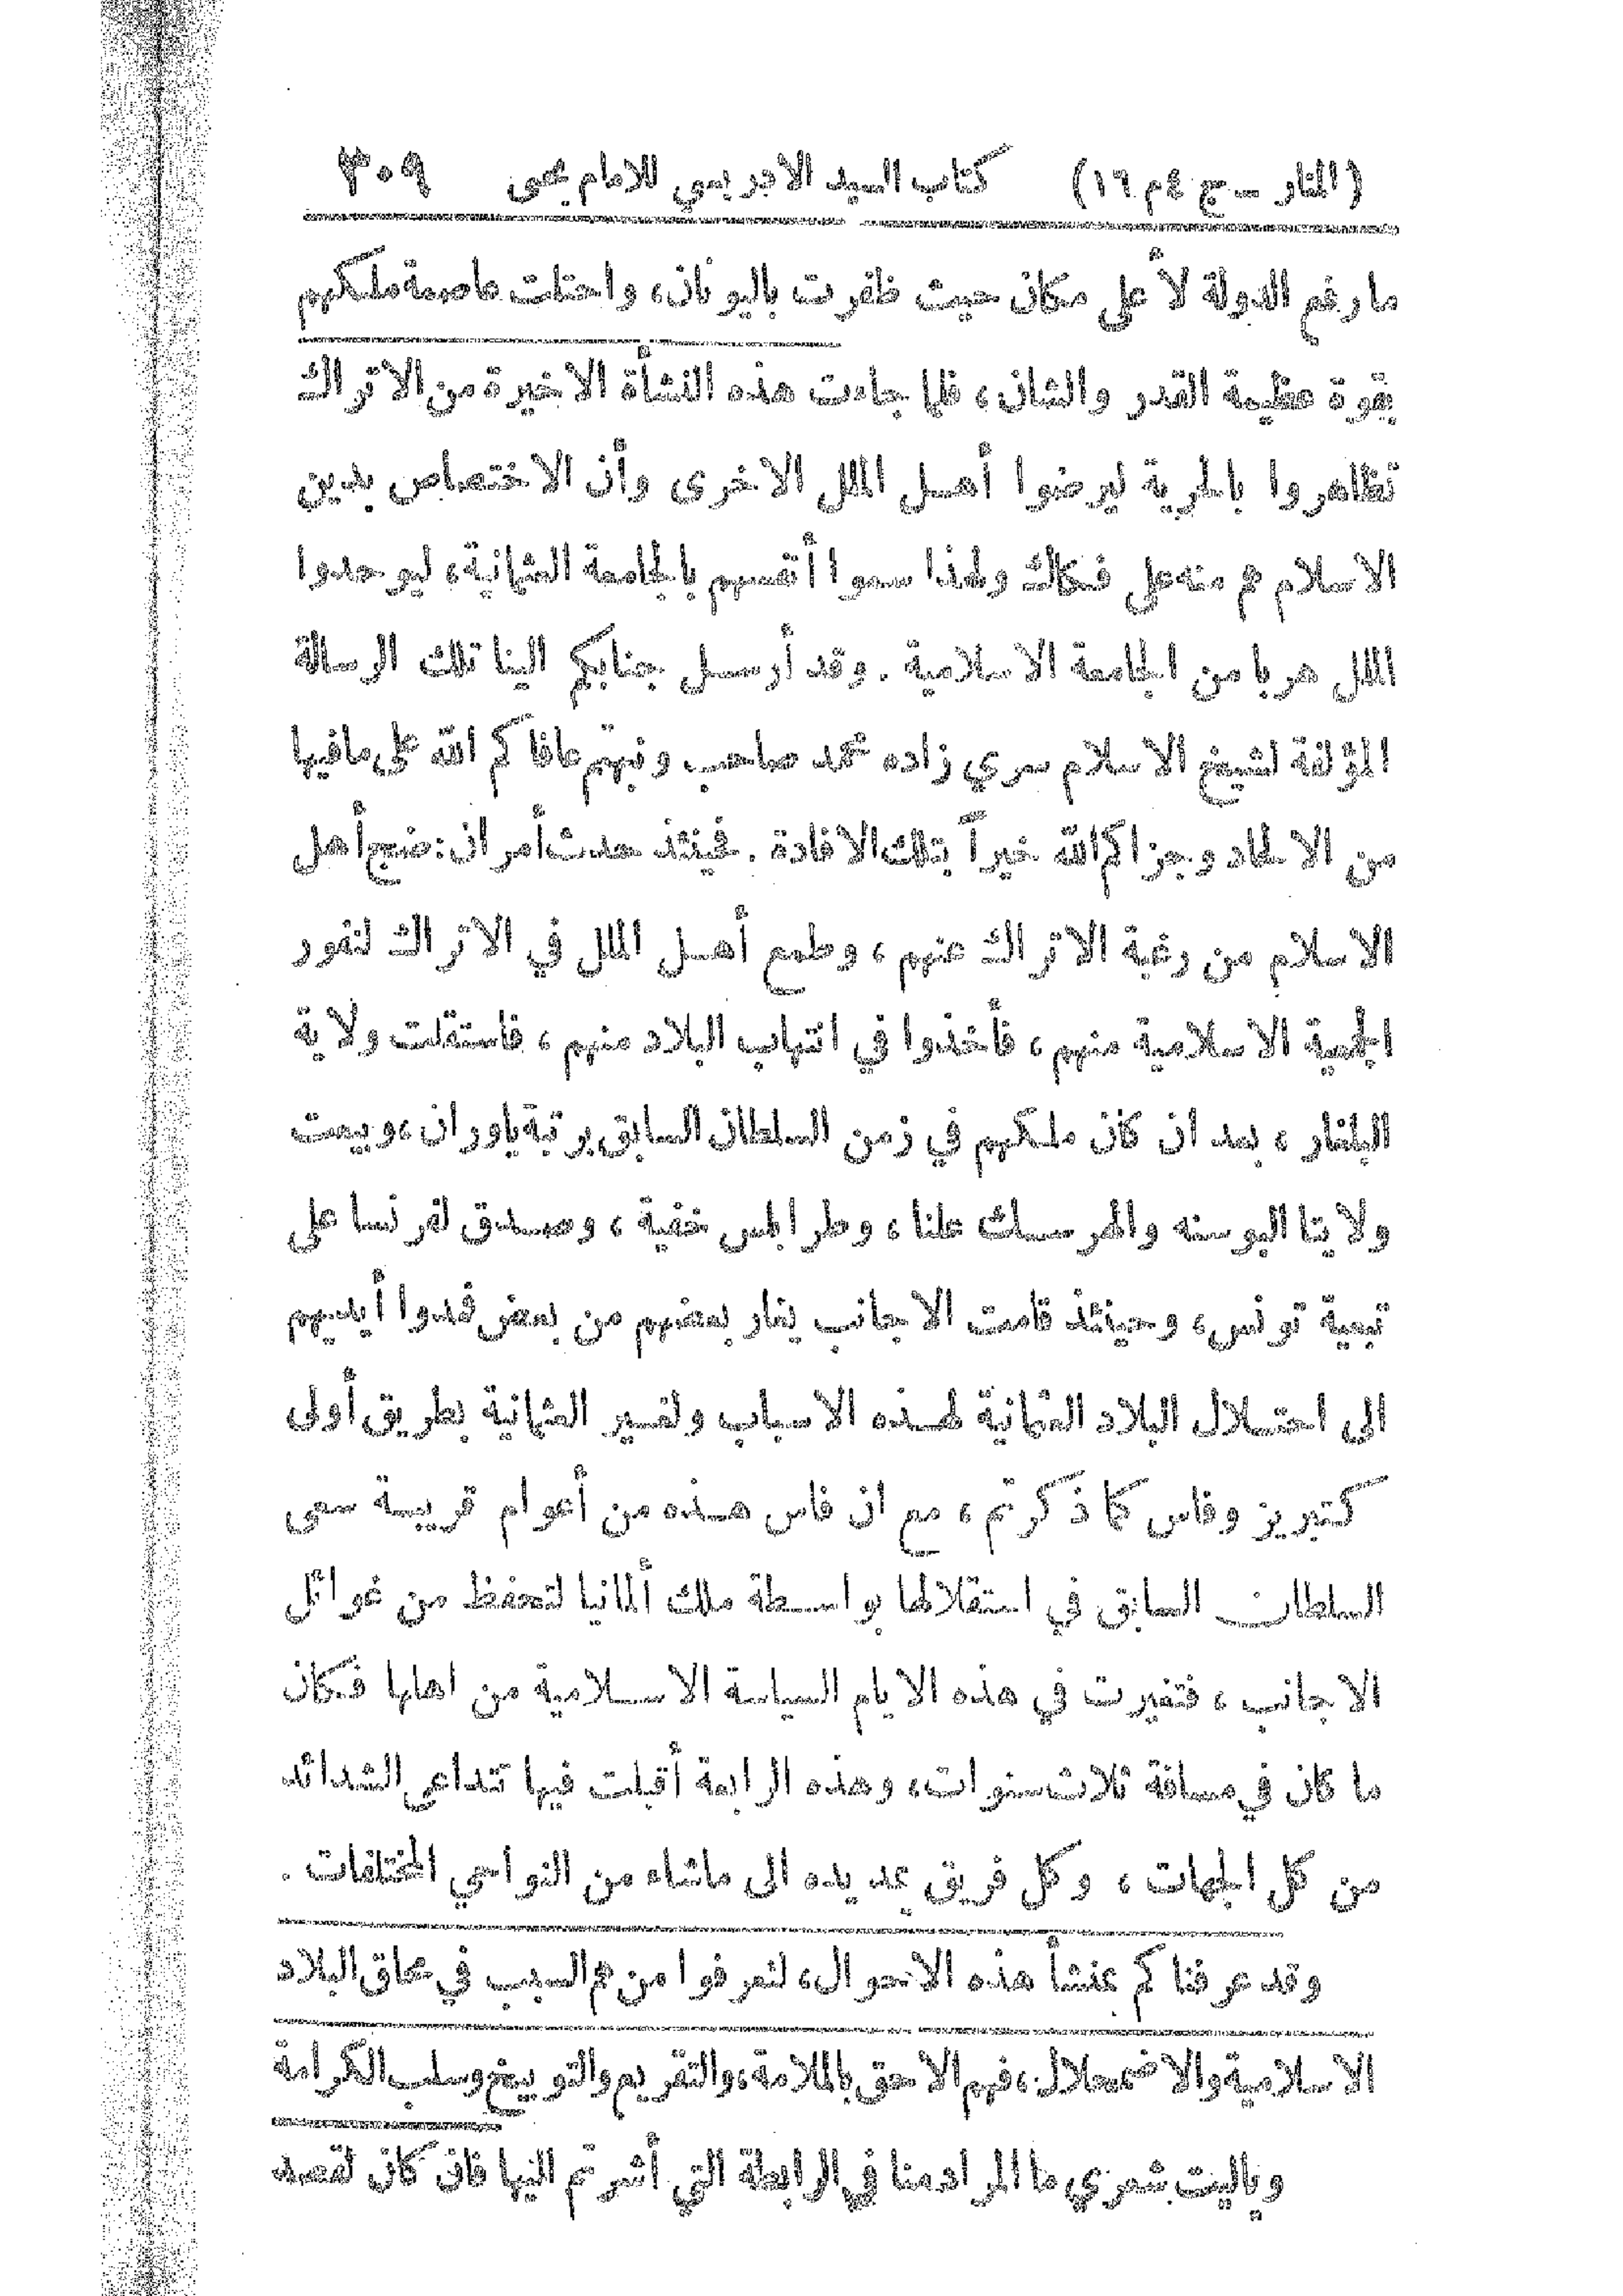 (المنار – ج ٤ م ١٦) كتاب السيد الادريسي للامام يحيى ٣٠٩
ما رفع الدولة لأعلى مكان حيث ظفرت باليونان، واحتلت عاصمة ملكهم
بقوة عظيمة القدر والشان، فلما جاءت هذه النشأة الاخيرة من الاتراك
تظاهروا بالحرية ليرضوا أهل الملل الاخرى وأن الاختصاص بدين
الاسلام هم منه على فكاك ولهذا سموا أنفسهم بالجامعة العثمانية، ليوحدوا
الملل هربا من الجامعة الاسلامية . وقد أرسل جنابكم الينا تلك الرسالة
المؤلفة لشيخ الاسلام سري زاده محمد صاحب ونبهتم عافاكم الله على ما فيها
من الالحاد وجزاكم الله خيراً بتلك الافادة . فحينئذ حدث أمران: ضج أهل
الاسلام من رغبة الاتراك عنهم ، وطمع أهل الملل في الاتراك لنفور
الجمعية الاسلامية منهم ، فأخذوا في انتهاب البلاد منهم ، فاستقلت ولاية
البلغار ، بعد ان كان ملكهم في زمن السلطان السابق برتبة ياوران، وبيعت
ولايتا البوسنه والهرسك علنا ، وطرابلس خفية ، وصدق لفرنسا على
تبعية تونس، وحينئذ قامت الاجانب يغار بعضهم من بعض فمدوا أيديهم
الى احتلال البلاد العثمانية لهذه الاسباب ولغير العثمانية بطريق أولى
كتبريز وفاس كما ذكرتم ، مع ان فاس هذه من أعوام قريبة سعى
السلطان السابق في استقلالها بواسطة ملك ألمانيا لتحفظ من غوائل
الاجانب ، فتغيرت في هذه الايام السياسة الاسلامية من اهلها فكان
ما كان في مسافة ثلاث سنوات، وهذه الرابعة أقبلت فيها تداعى الشدائد
من كل الجهات ، وكل فريق يمد يده الى ماشاء من النواحي المختلفات .
وقد عرفناكم بمنشأ هذه الاحوال، لتعرفوا من هم السبب في محاق البلاد
الاسلامية والاضمحلال، فهم الاحق بالملامة، والتقريع والتوبيخ وسلب الكرامة
وياليت شعري ما المراد منا في الرابطة التي أشرتم اليها فان كان لقصد